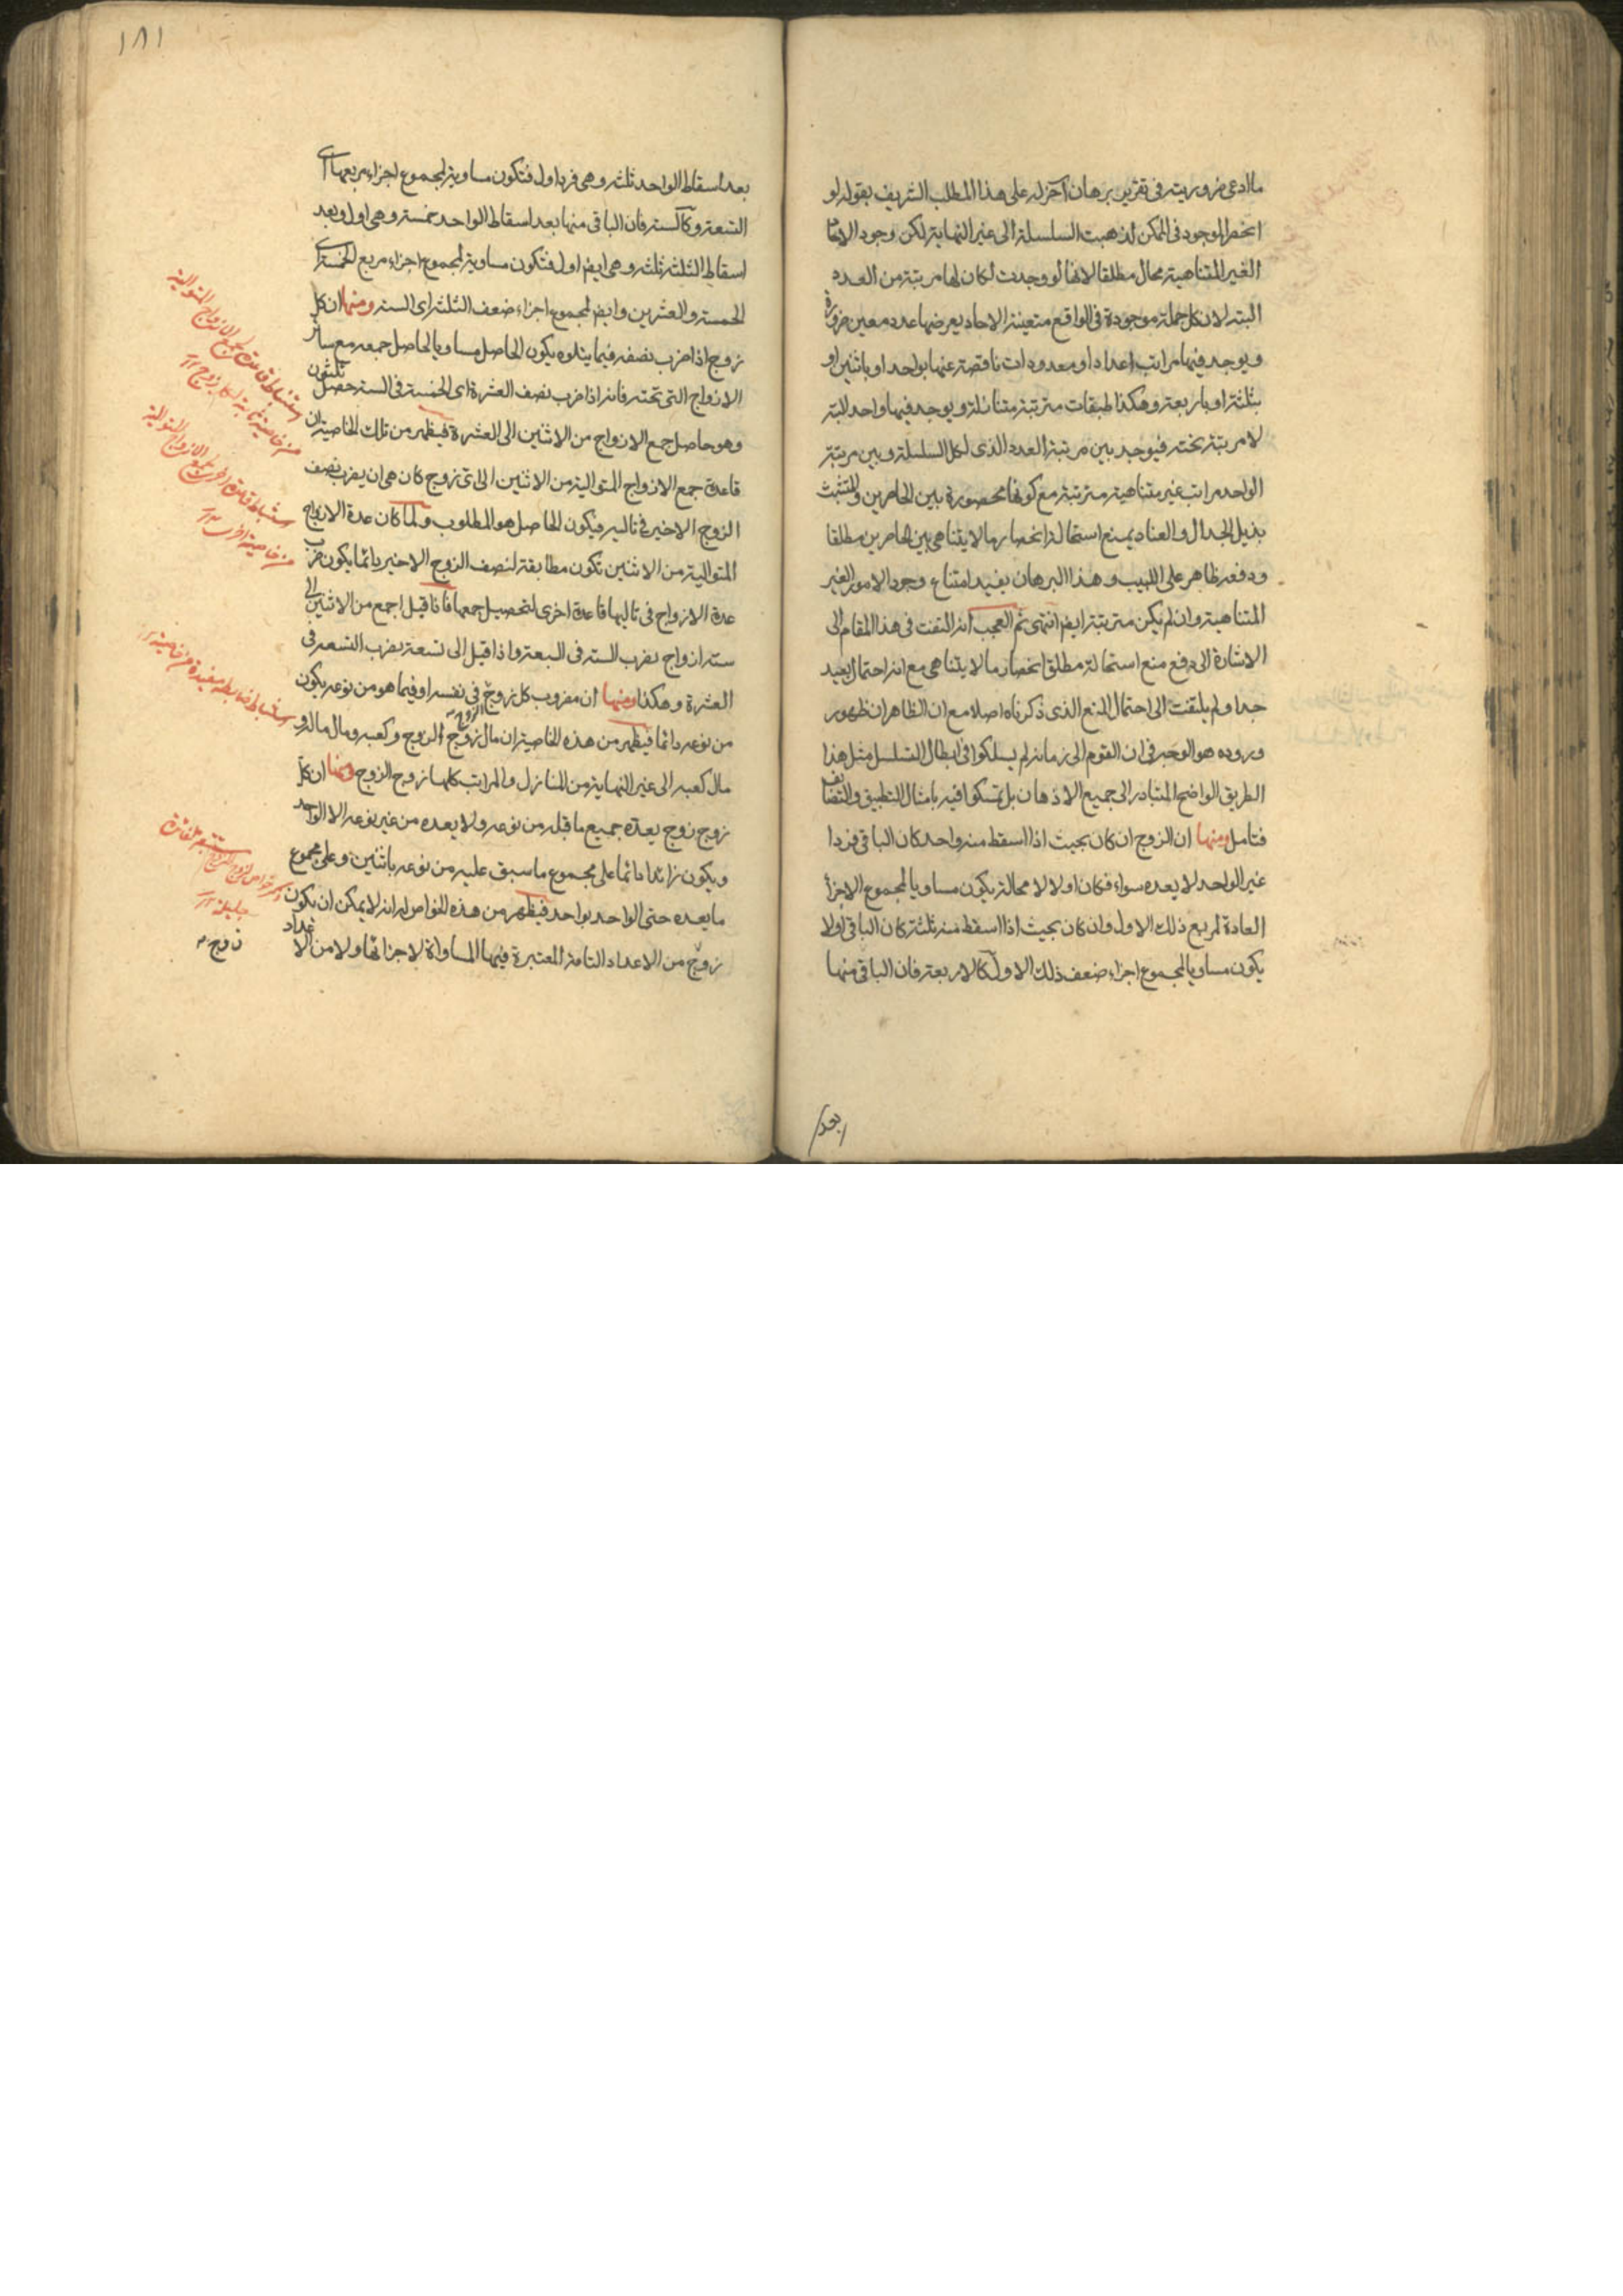 ما ادعى ضرورية فى تقرير برهان آخر له على هذا المطلب الشريف بقوله لو
انحصر الموجود فى الممكن لذهبت السلسلة الى غير النهاية لكن وجود
الغير المتناهية محال مطلقا لانها لو وجدت لكان لها مرتبة من العدد
البته لان كل جملة موجودة فى الواقع متعينة الاحاد يعرضها عدد معين ضرورة
ويوجد فيها مراتب اعداد او معدودات ناقصة عنها بواحد او باثنين او
بثلثة او باربعة وهكذا طبقات مترتبة متنازلة ويوجد فيها واحد البتة
لا مرتبة تحته فيوجد بين مرتبة العدد الذى لكل السلسلة وبين مرتبة
الواحد مراتب غير متناهية مترتبة مع كونها محصورة بين الحاصرين والمتشبث
بذيل الجدال والعناد يمنع استحالة انحصار ما لا يتناهى بين الحاصرين مطلقا
ودفعه ظاهر على اللبيب وهذا البرهان يفيد امتناع وجود الامور الغير
المتناهية وان لم يكن مترتبة ايضا انتهى ثم العجب انه التفت فى هذا المقام الى
الاشارة الى دفع منع استحالة مطلق انحصار ما لا يتناهى مع انه احتمال بعيد
جدا ولم يلتفت الى احتمال المنع الذى ذكرناه اصلا مع ان الظاهر ان ظهور
وروده هو الوجه فى ان القوم الى زمانه لم يسلكوا فى ابطال التسلسل مثل هذا
الطريق الواضح المتبادر الى جميع الاذهان بل تمسكوا فيه بامثال التطبيق والتضايف
فتامل ومنها ان الزوج ان كان بحيث اذا اسقط منه واحد كان الباقى فردا
غير الواحد لا يعده سواه فكان اولا لا محالة يكون مساويا لمجموع الاجزاء
العادة لمربع ذلك الاول وان كان بحيث اذا اسقط منه ثلثة كان الباقى اولا
يكون مساويا لمجموع اجزاء ضعف ذلك الاول كالاربعة فان الباقى منها
بعد
١٨١
بعد اسقاط الواحد ثلثة وهى فرد اول فتكون مساوية لمجموع اجزاء مربعها اى
التسعة وكالستة فان الباقى منها بعد اسقاط الواحد خمسة وهى اول وبعد
اسقاط الثلثة ثلثة وهى ايضا اول فتكون مساوية لمجموع اجزاء مربع الخمسة اى
الخمسة والعشرين وايضا لمجموع اجزاء ضعف الثلثة اى الستة ومنها ان كل
زوج اذا ضرب نصفه فيما يتلوه يكون الحاصل مساويا لحاصل جمعه مع سائر
الازواج التى تحته فانه اذا ضرب نصف العشرة اى الخمسة فى الستة حصل ثلثون
وهو حاصل جمع الازواج من الاثنين الى العشرة فيظهر من تلك الخاصية ان
قاعدة جمع الازواج المتوالية من الاثنين الى اى زوج كان هى ان يضرب نصف
الزوج الاخير فى تاليه فيكون الحاصل هو المطلوب ولما كان عدة الازواج
المتوالية من الاثنين تكون مطابقة لنصف الزوج الاخير دائما يكون ضرب
عدة الازواج فى تاليها قاعدة اخرى لتحصيل جمعها فاذا قيل اجمع من الاثنين الى
ستة ازواج يضرب الستة فى السبعة واذا قيل الى تسعة يضرب التسعة فى
العشرة وهكذا ومنها ان مضروب كل زوج فى نفسه او فيما هو من نوعه يكون
من نوعه دائما فيظهر من هذه الخاصية ان مال زوج الزوج وكعبه ومال ماله و
مال كعبه الى غير النهاية من المنازل والمراتب كلها زوج الزوج ومنها ان كل
زوج زوج يعده جميع ما قبله من نوعه ولا يعده من غير نوعه الا الواحد
ويكون زائدا دائما على مجموع ما سبق عليه من نوعه باثنين وعلى مجموع
ما يعده حتى الواحد بواحد فيظهر من هذه الخواص انه لا يمكن ان يكون
زوج من الاعداد التامة المعتبرة فيها المساواة لاجزائها ولا من الاعداد
زوج
استنباط قاعدة لجمع الازواج المتوالية
من خاصية ثابتة لكل زوج ١٢
استنباط قاعدة اخرى لجمع الازواج المتوالية
من خاصية اخرى ١٢
استنباط ضابطة مفيدة من خاصية ١٢
ذكر خواص لزوج الزوج
جليلة ١٢